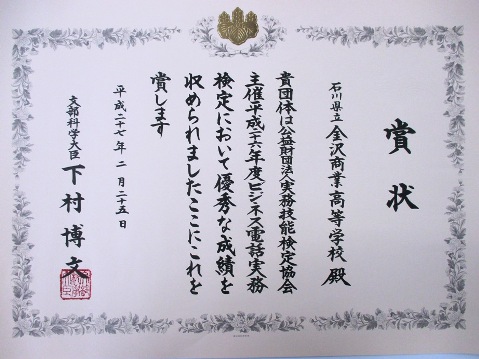 賞状
石川県立金沢商業高等学校 殿
貴団体は公益財団法人実務技能検定協会
主催平成二六年度ビジネス電話実務
検定において優秀な成績を
収められましたここにこれを
賞します
平成二十七年二月二十五日
文部科学大臣 下村博文